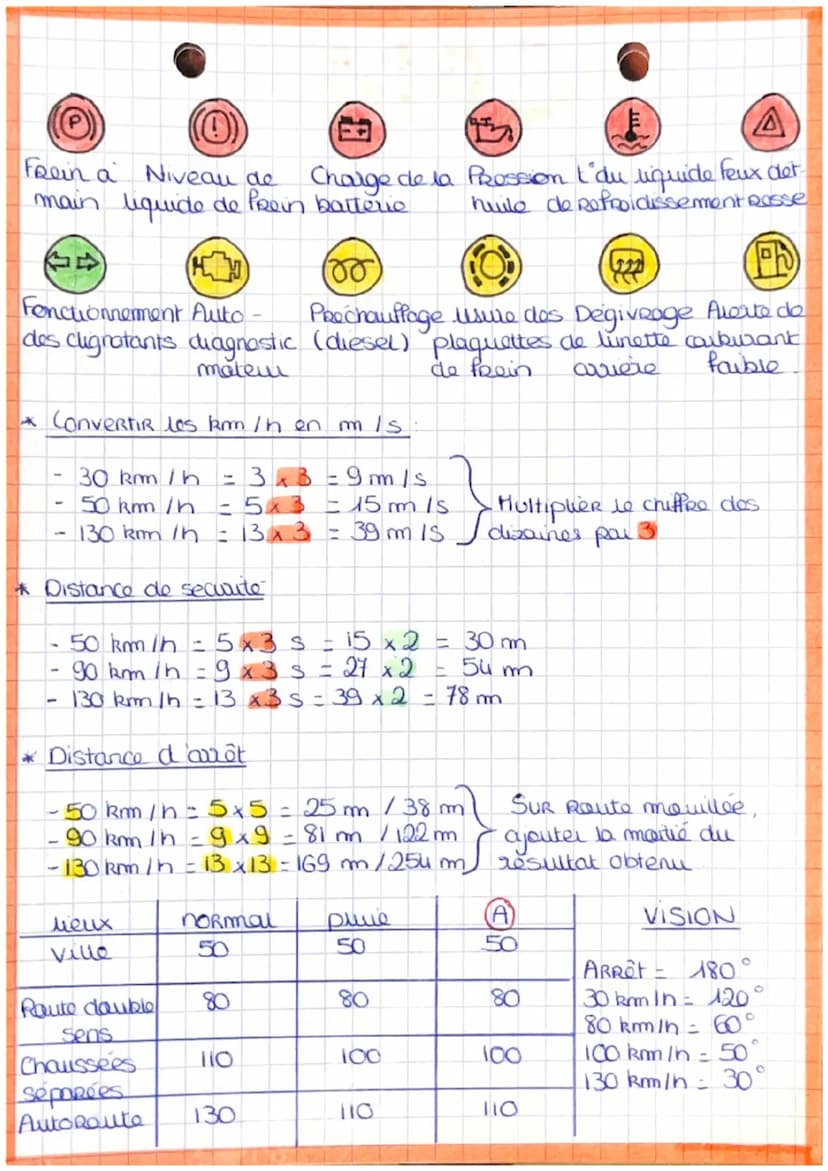 P
Frein à Niveau de Charge de la Pression t° du liquide Feux det-
main liquide de frein batterie huile de Refroidissement resse
Fonctionnement Auto- Préchauffage Usure des Dégivrage Alerte de
des clignotants diagnostic (diesel) plaquettes de lunette carburant
moteur de frein arrière faible.
* Convertir les km/h en m/s :
- 30 km/h = 3 x 3 = 9 m/s
- 50 km/h = 5 x 3 = 15 m/s Multiplier le chiffre des
- 130 km/h = 13 x 3 = 39 m/s dizaines par 3
* Distance de securité
- 50 km/h = 5 x 3 s = 15 x 2 = 30 m
- 90 km/h = 9 x 3 s = 27 x 2 = 54 m
- 130 km/h = 13 x 3 s = 39 x 2 = 78 m
* Distance d'arrêt
- 50 km/h = 5 x 5 = 25 m / 38 m Sur Route mouillée,
- 90 km/h = 9 x 9 = 81 m / 122 m ajouter la moitié du
- 130 km/h = 13 x 13 = 169 m / 254 m résultat obtenu
lieux normal pluie A VISION
Ville 50 50 50
ARRêt = 180°
Route double 80 80 80 30 km/h = 120°
sens 80 km/h = 60°
Chaussées 110 100 100 100 km/h = 50°
séparées 130 km/h = 30°
Autoroute 130 110 110